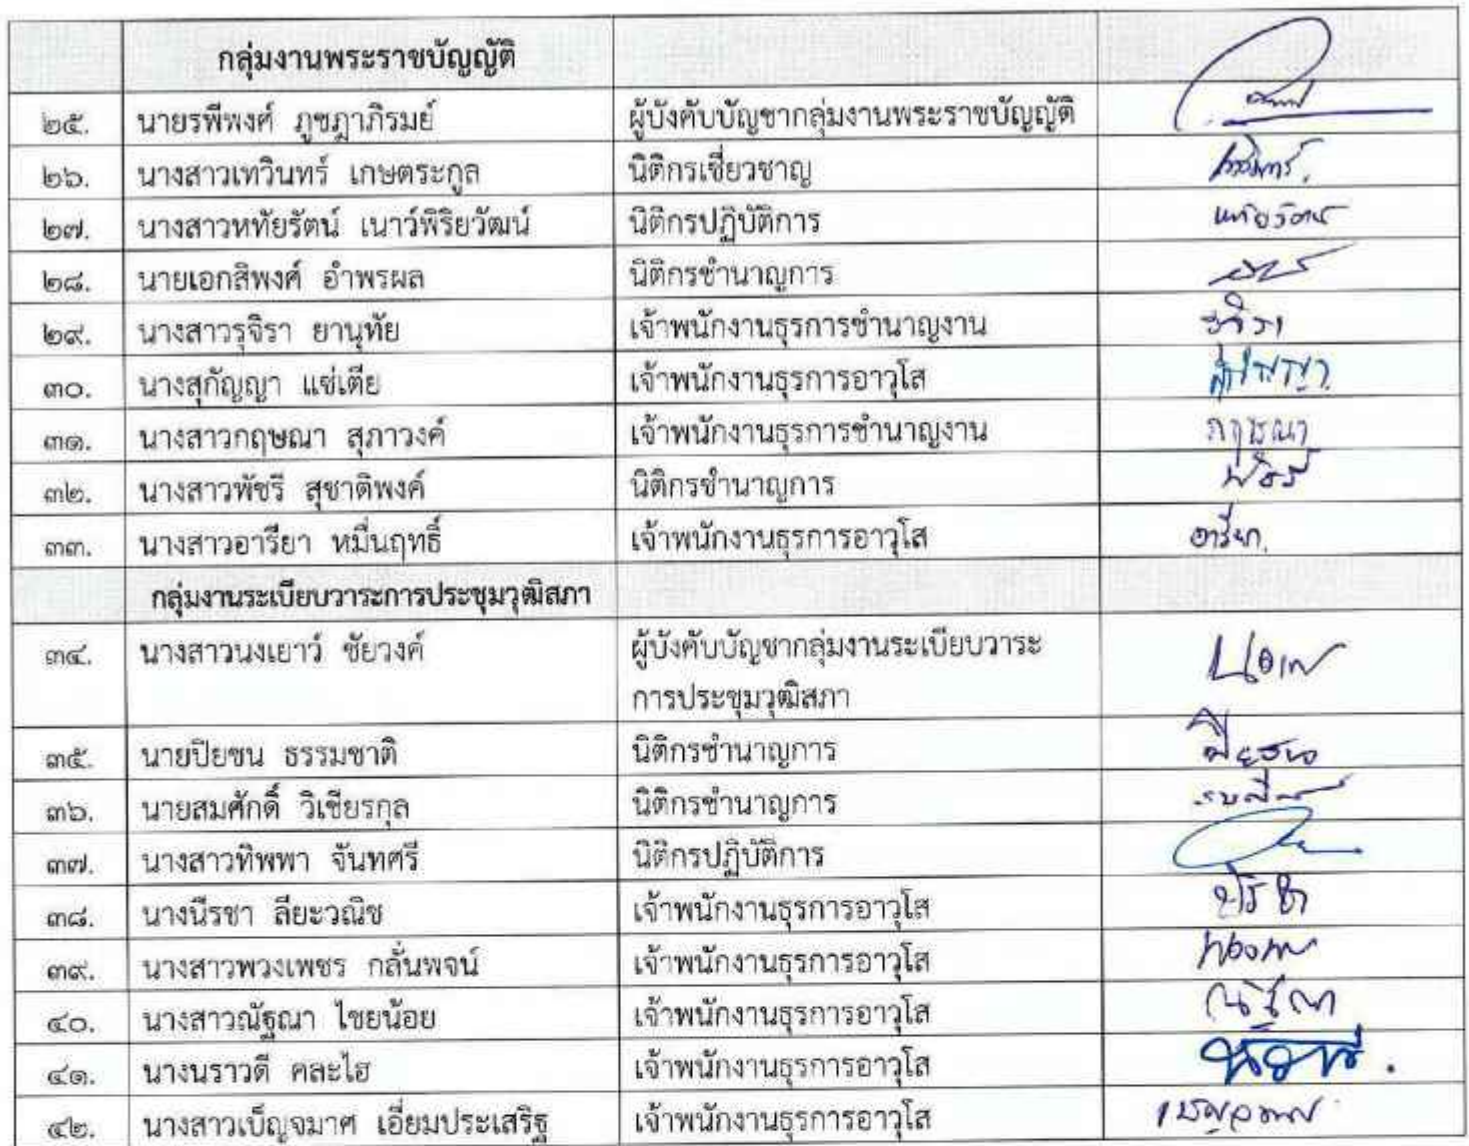 กลุ่มงานพระราชบัญญัติ
๒๕. นายรพีพงศ์ ภูชฎาภิรมย์ ผู้บังคับบัญชากลุ่มงานพระราชบัญญัติ
๒๖. นางสาวเทวินทร์ เกษตระกูล นิติกรเชี่ยวชาญ เทวินทร์
๒๗. นางสาวหทัยรัตน์ เนาว์พิริยวัฒน์ นิติกรปฏิบัติการ หทัยรัตน์
๒๘. นายเอกสิพงศ์ อำพรผล นิติกรชำนาญการ
๒๙. นางสาวรุจิรา ยานุทัย เจ้าพนักงานธุรการชำนาญงาน รุจิรา
๓๐. นางสุกัญญา แซ่เตีย เจ้าพนักงานธุรการอาวุโส สุกัญญา
๓๑. นางสาวกฤษณา สุภาวงค์ เจ้าพนักงานธุรการชำนาญงาน กฤษณา
๓๒. นางสาวพัชรี สุชาติพงค์ นิติกรชำนาญการ พัชรี
๓๓. นางสาวอารียา หมื่นฤทธิ์ เจ้าพนักงานธุรการอาวุโส อารียา
กลุ่มงานระเบียบวาระการประชุมวุฒิสภา
๓๔. นางสาวนงเยาว์ ชัยวงค์ ผู้บังคับบัญชากลุ่มงานระเบียบวาระ
การประชุมวุฒิสภา
๓๕. นายปิยชน ธรรมชาติ นิติกรชำนาญการ ปิยชน
๓๖. นายสมศักดิ์ วิเชียรกุล นิติกรชำนาญการ
๓๗. นางสาวทิพพา จันทศรี นิติกรปฏิบัติการ
๓๘. นางนีรชา ลียะวณิช เจ้าพนักงานธุรการอาวุโส นีรชา
๓๙. นางสาวพวงเพชร กลั่นพจน์ เจ้าพนักงานธุรการอาวุโส
๔๐. นางสาวณัฐณา ไชยน้อย เจ้าพนักงานธุรการอาวุโส ณัฐณา
๔๑. นางนราวดี คละไฮ เจ้าพนักงานธุรการอาวุโส
๔๒. นางสาวเบ็ญจมาศ เอี่ยมประเสริฐ เจ้าพนักงานธุรการอาวุโส เบ็ญจมาศ